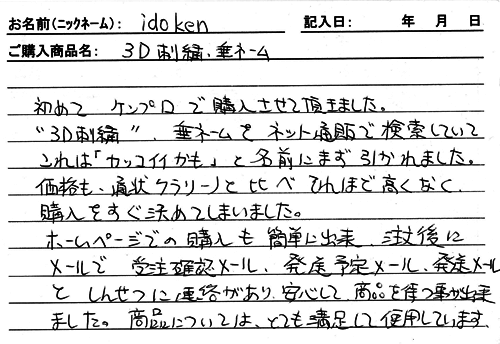 お名前(ニックネーム): idoken 記入日: 年 月 日
ご購入商品名: 3D刺繍・垂ネーム
初めて ケンプロで購入させて頂きました。
"3D刺繍"、垂ネームをネット通販で検索していて
これは「カッコイイかも」と名前にまず引かれました。
価格も、通状クラリーノと比べ それほど高くなく、
購入をすぐ決めてしまいました。
ホームページでの購入も簡単に出来、注文後に
メールで 受注確認メール、発送予定メール、発送メール
と しんせつに連絡があり、安心して商品を待つ事が出来
ました。商品については、とても満足して使用しています。